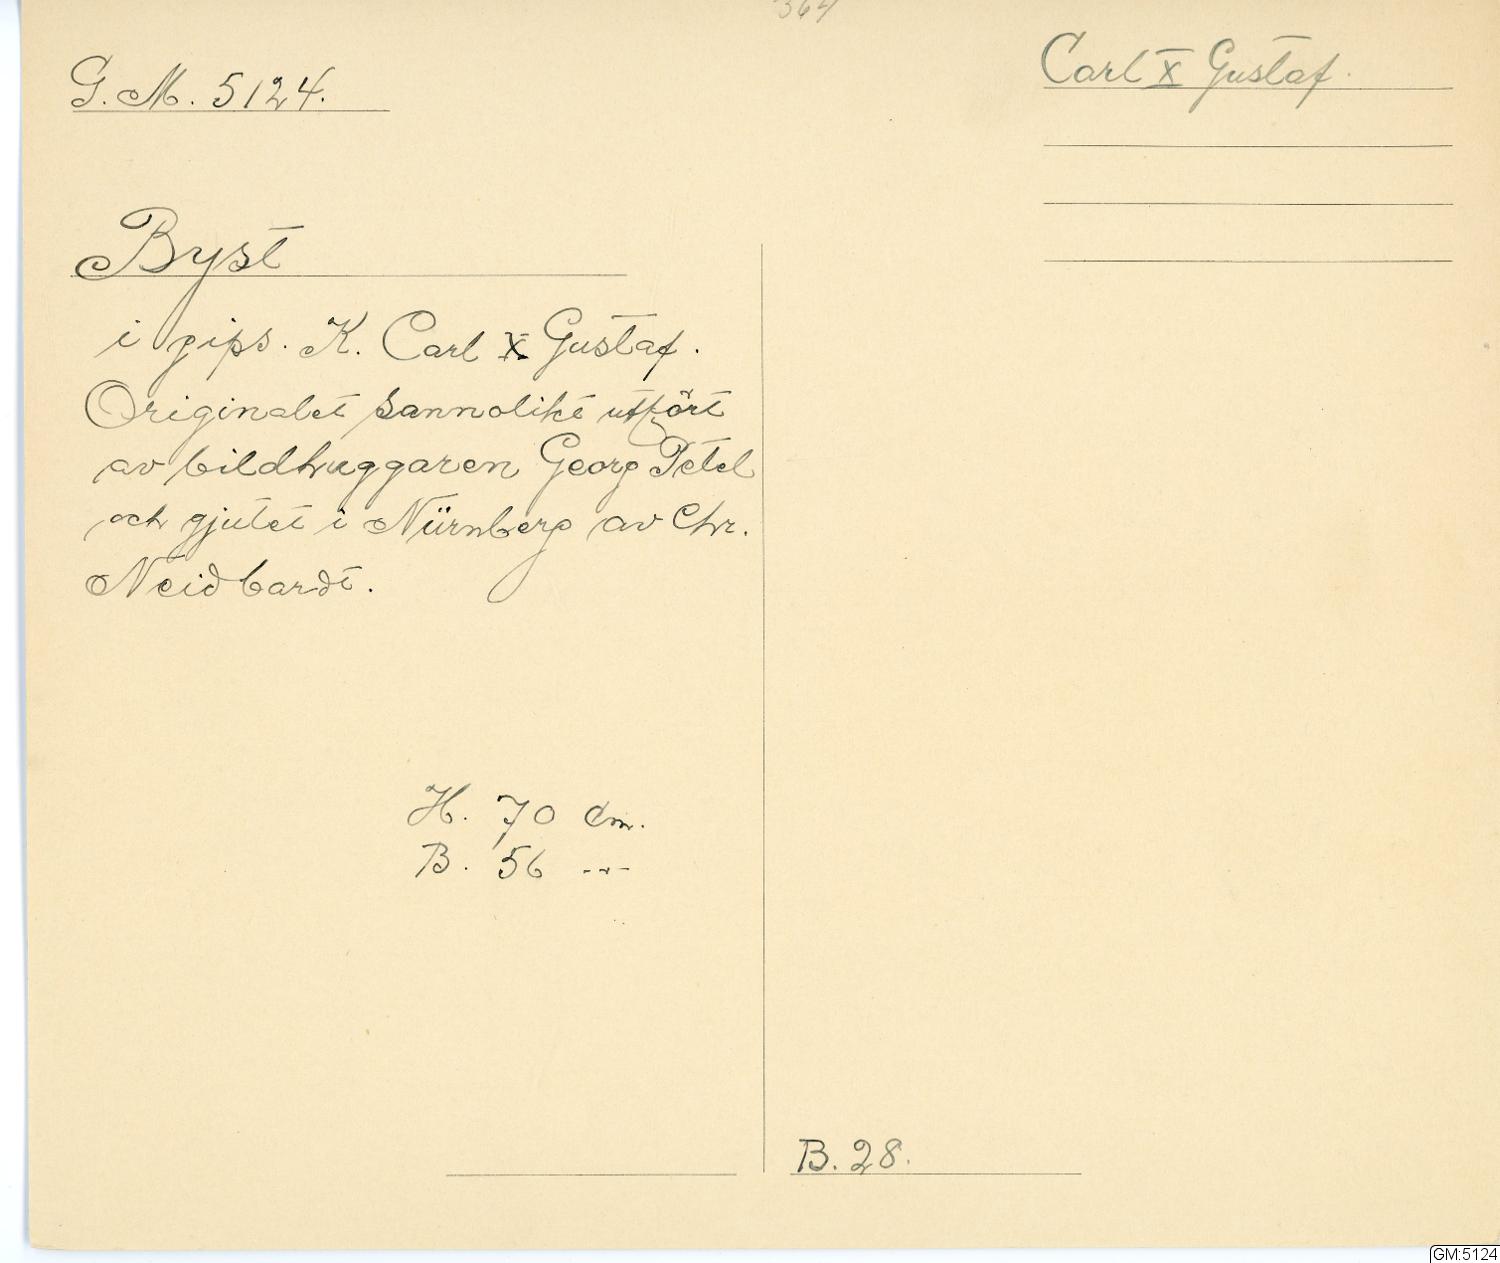 364
G.M. 5124.
Carl X Gustaf.
Byst
i gips. K. Carl X Gustaf.
Originalet sannolikt utfört
av bildhuggaren Georg Petel
och gjutet i Nürnberg av Chr.
Neidhardt.
H. 70 cm.
B. 56 -"-
B. 28.
GM:5124